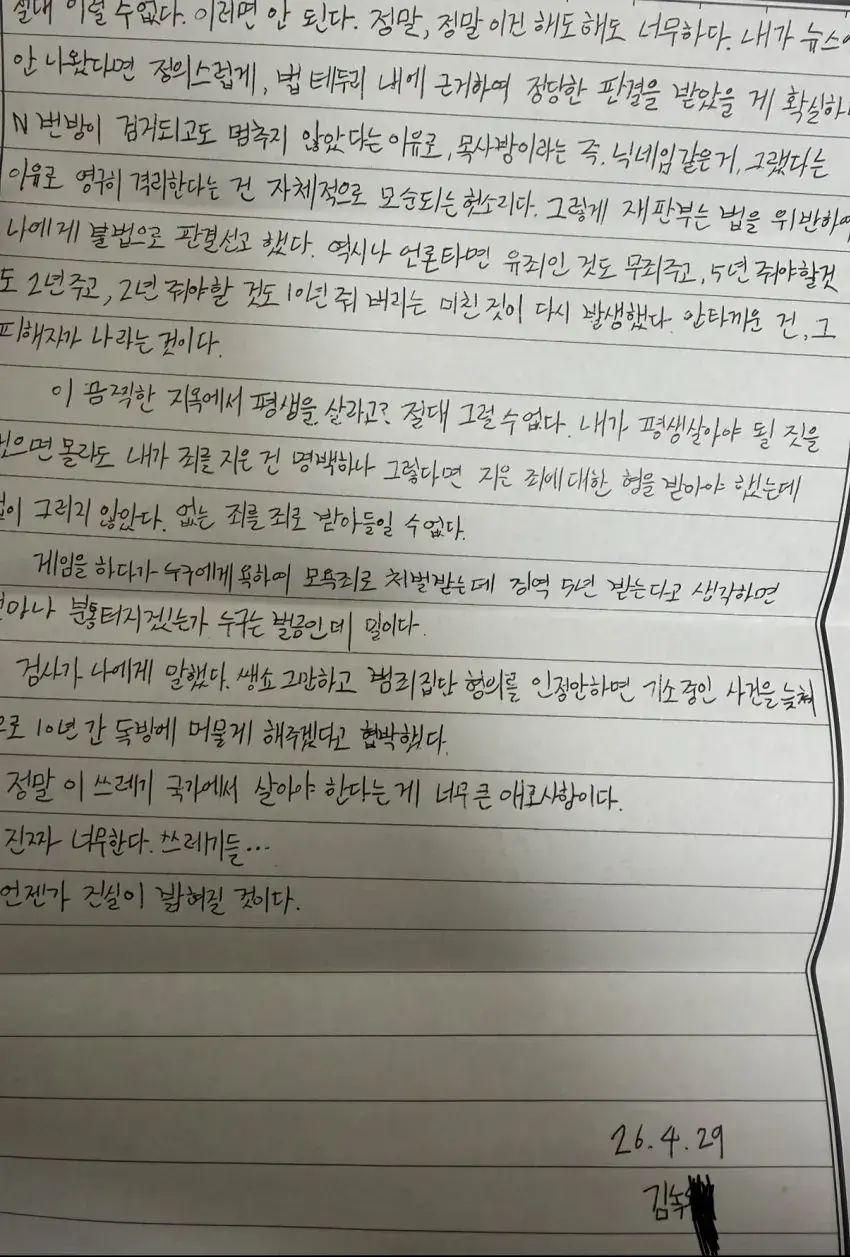 이럴 수 없다. 이러면 안 된다. 정말, 정말 이건 해도 해도 너무하다. 내가 뉴스에
안 나왔다면 정의스럽게, 법 테두리 내에 근거하여 정당한 판결을 받았을 게 확실하
N번방이 검거되고도 멈추지 않았다는 이유로, 목사방이라는 즉, 닉네임같은거, 그랬다는
이유로 영구히 격리한다는 건 자체적으로 모순되는 헛소리다. 그렇게 재판부는 법을 위반하여
나에게 불법으로 판결선고 했다. 역시나 언론타면 유죄인 것도 무죄주고, 5년 줘야할것
도 2년주고, 2년 줘야할 것도 10년 줘 버리는 미친 짓이 다시 발생했다. 안타까운 건, 그
피해자가 나라는 것이다.
이 끔찍한 지옥에서 평생을 살라고? 절대 그럴 수 없다. 내가 평생살아야 될 짓을
했으면 몰라도 내가 죄를 지은 건 명백하나 그렇다면 지은 죄에 대한 형을 받아야 했는데
그러지 않았다. 없는 죄를 죄로 받아들일 수 없다.
게임을 하다가 누구에게 욕하여 모욕죄로 처벌받는데 징역 5년 받는다고 생각하면
얼마나 분통터지겠는가 누구는 벌금인데 말이다.
검사가 나에게 말했다. 쌩쇼 그만하고 범죄집단 혐의를 인정안하면 기소중인 사건을 늦춰
으로 10년 간 독방에 머물게 해주겠다고 협박했다.
정말 이 쓰레기 국가에서 살아야 한다는 게 너무 큰 애로사항이다.
진짜 너무한다. 쓰레기들...
언젠가 진실이 밝혀질 것이다.
26.4.29
김녹